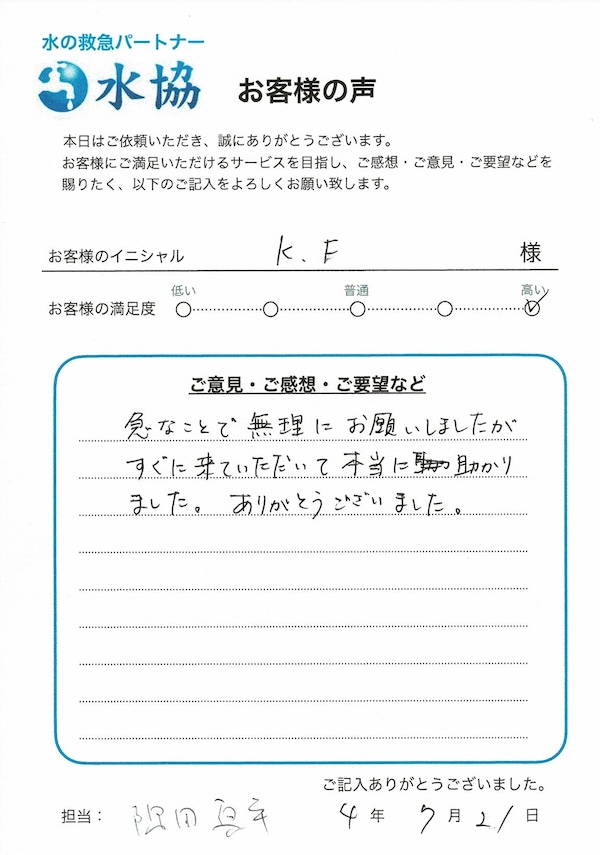 水の救急パートナー
水協 お客様の声
本日はご依頼いただき、誠にありがとうございます。
お客様にご満足いただけるサービスを目指し、ご感想・ご意見・ご要望などを
賜りたく、以下のご記入をよろしくお願い致します。
お客様のイニシャル K.F 様
低い 普通 高い
お客様の満足度
ご意見・ご感想・ご要望など
急なことで無理にお願いしましたが
すぐに来ていただいて本当に助かり
ました。ありがとうございました。
ご記入ありがとうございました。
担当: 隈田 4年 7月21日